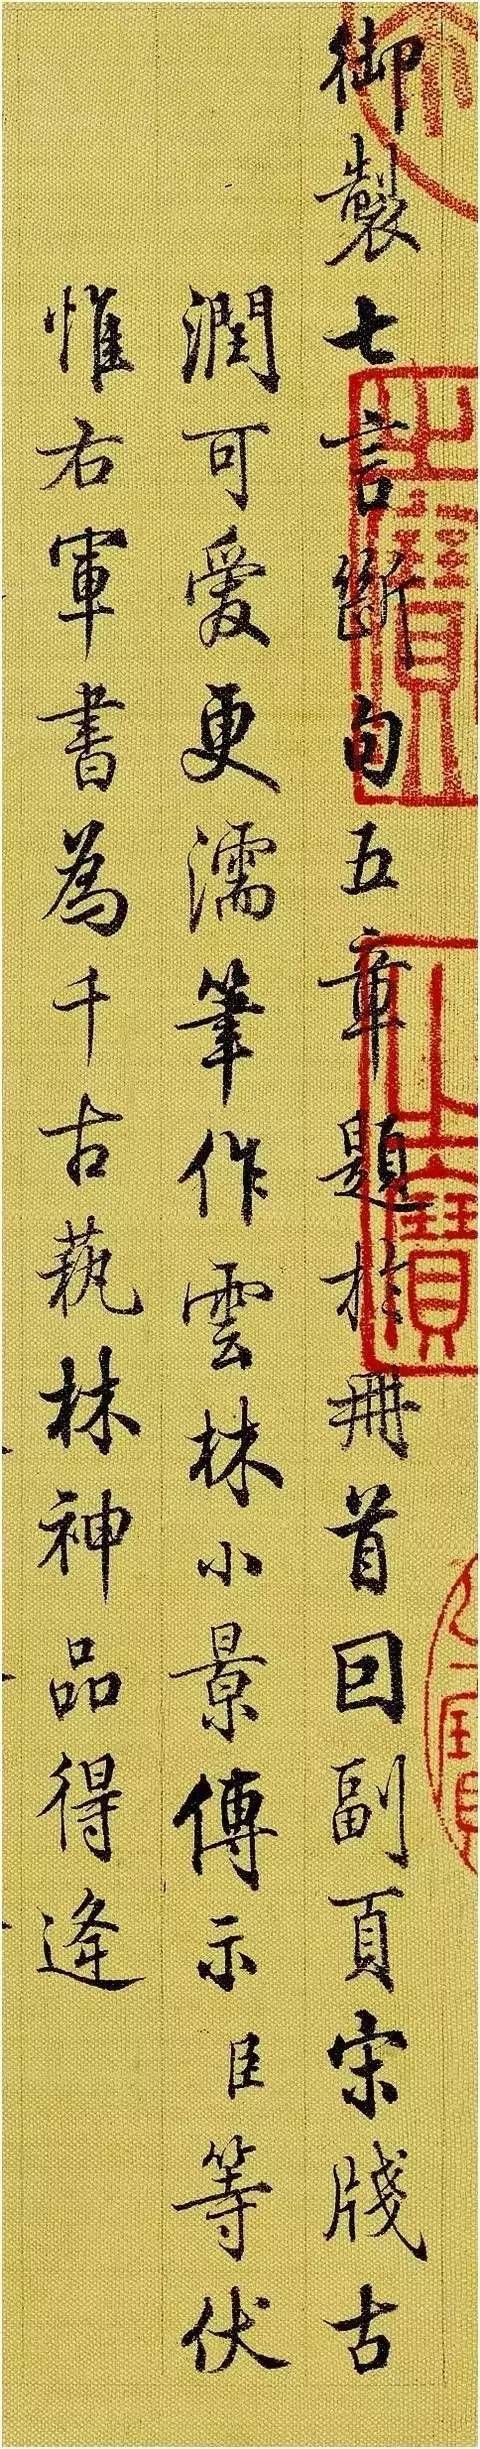 御製七言斷句五章題於冊首回副頁宋牋古
潤可愛更濡筆作雲林小景傳示臣等伏
惟右軍書為千古藝林神品得逢
之寶
之寶